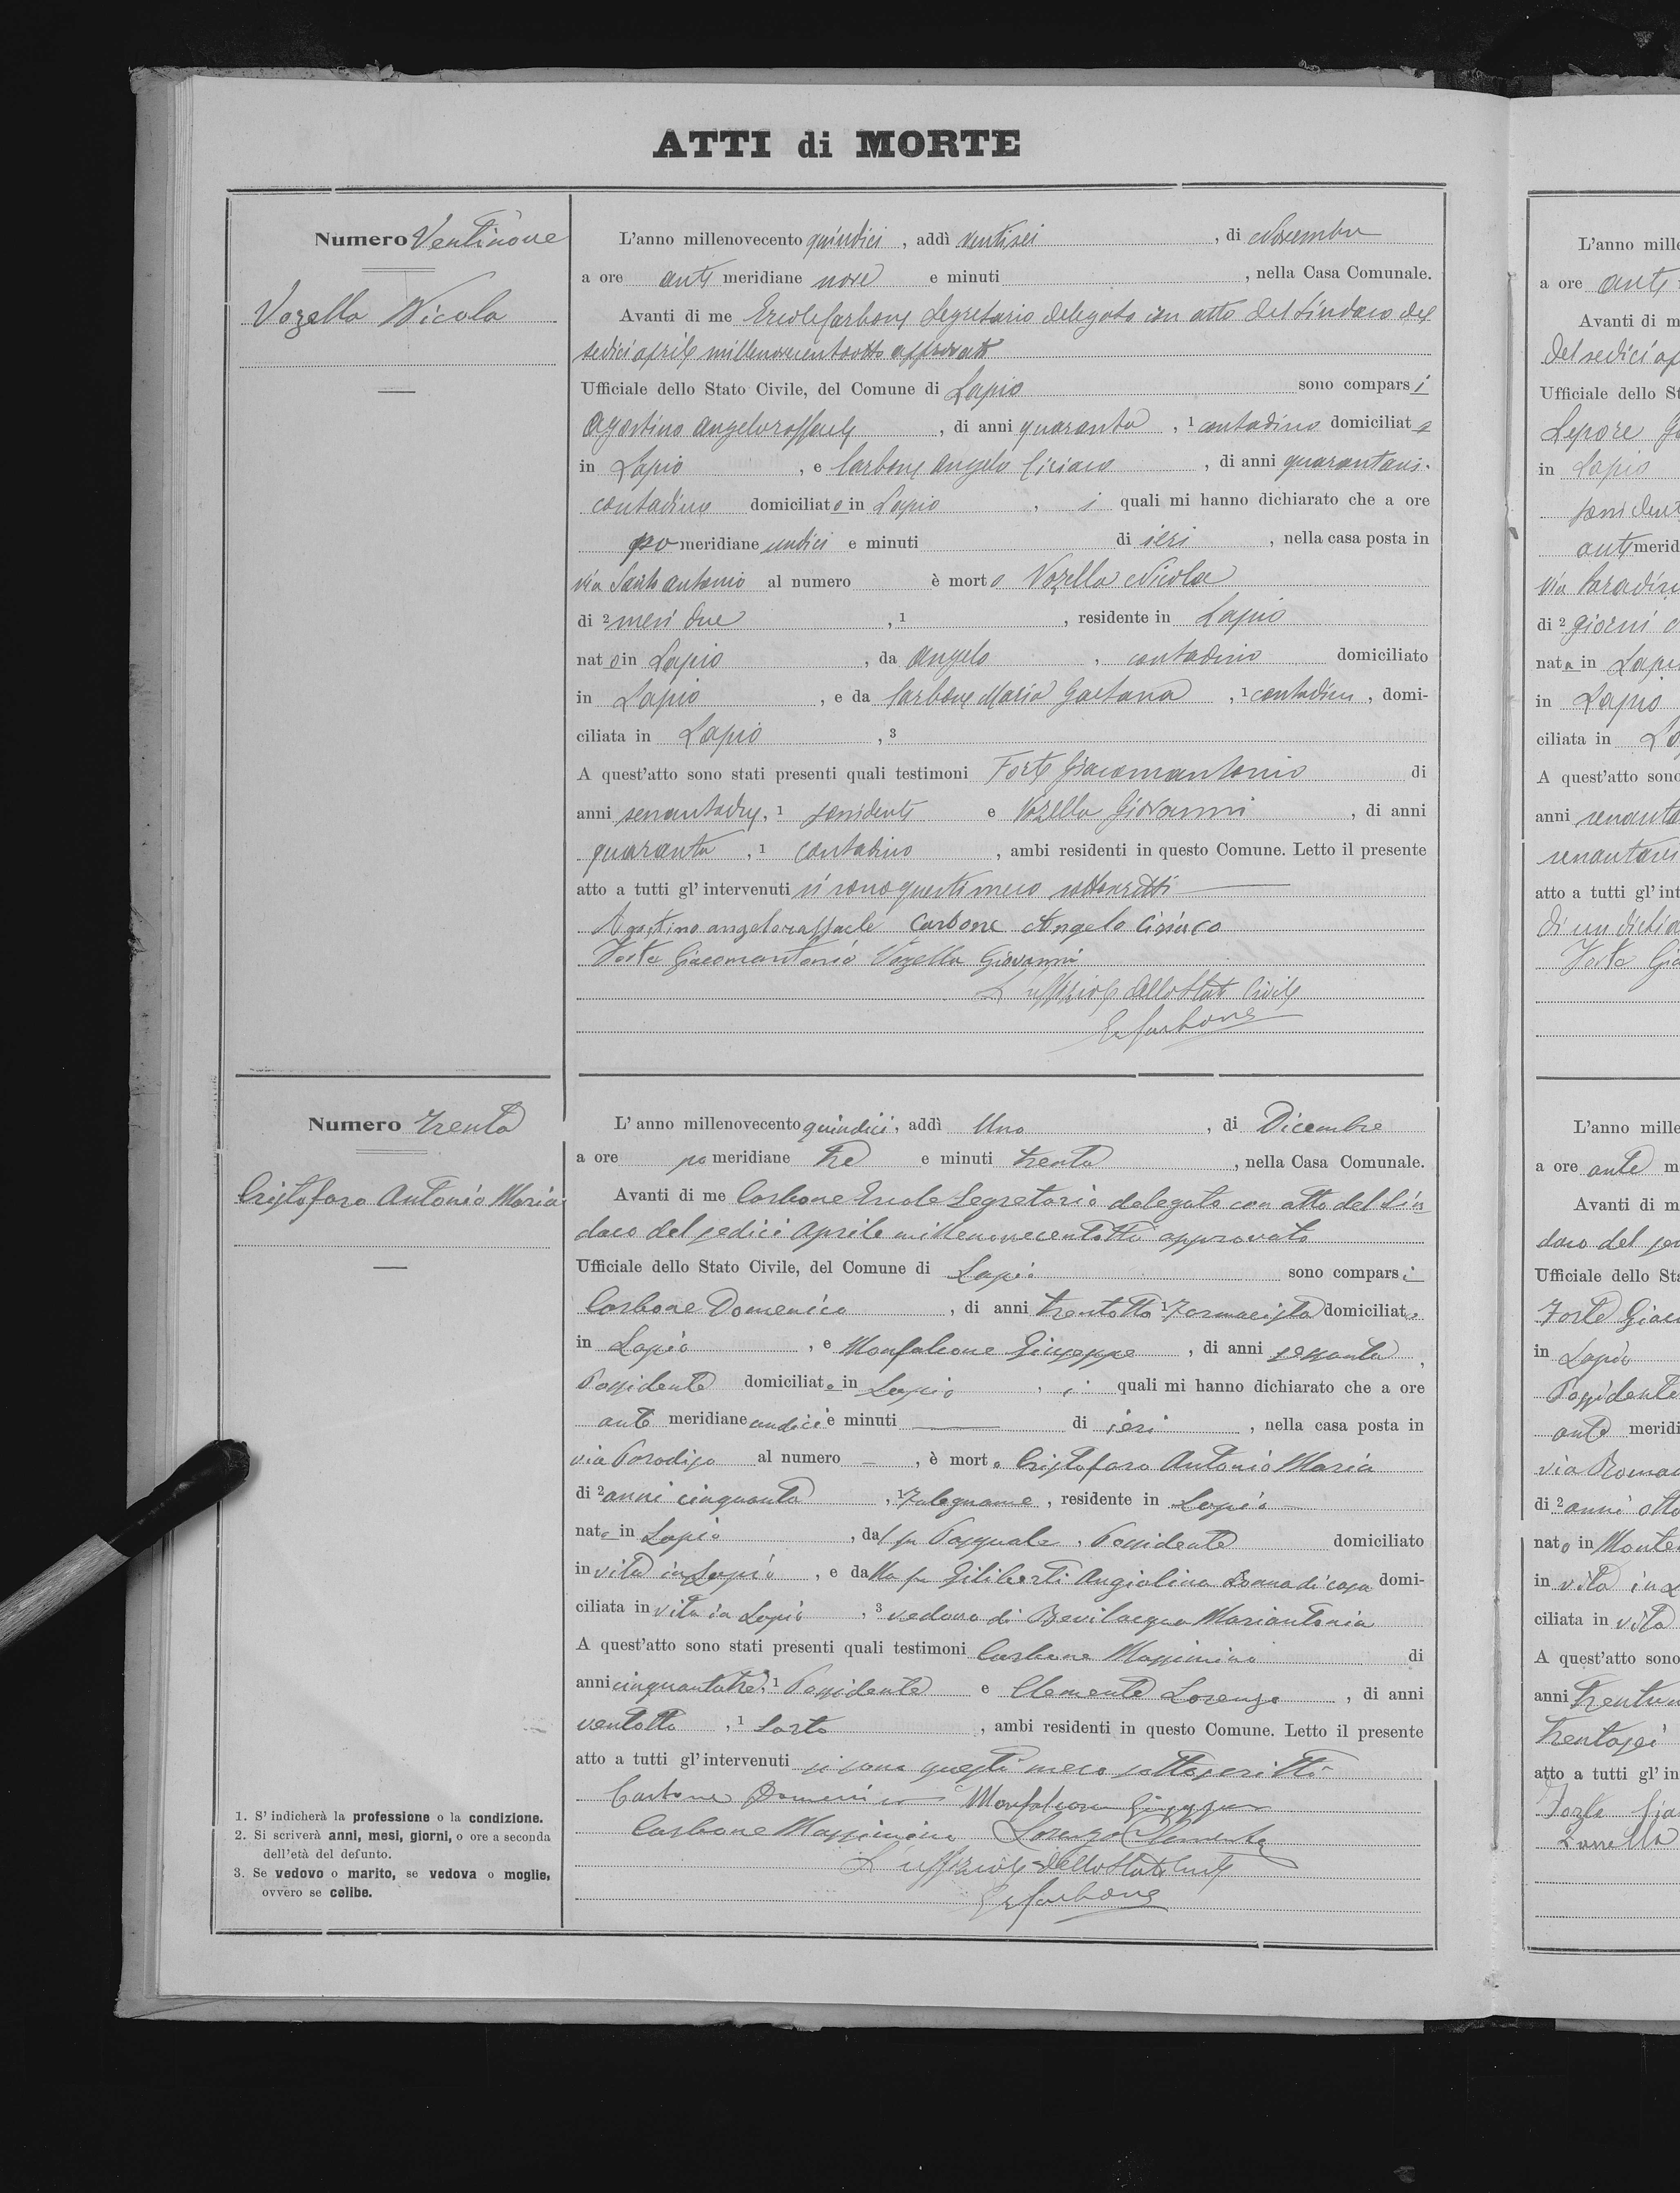 ATTI di MORTE
Numero Ventinove
Vozella Nicola
L'anno millenovecento quindici, addì ventisei, di Novembre
a ore anti meridiane nove e minuti , nella Casa Comunale.
Avanti di me Ercole Carbone Segretario delegato con atto del Sindaco del
sedici aprile millenovecentootto approvato
Ufficiale dello Stato Civile, del Comune di Lapio sono comparsi
Agostino Angeloraffaele, di anni quaranta, 1 contadino domiciliato
in Lapio, e Carbone Angelo Ciriaco, di anni quarantasei.
contadino domiciliato in Lapio, i quali mi hanno dichiarato che a ore
pomeridiane undici e minuti di ieri, nella casa posta in
via Santo Antonio al numero è morto Vozella Nicola
di 2 mesi due, 1 , residente in Lapio
nato in Lapio, da Angelo, contadino domiciliato
in Lapio, e da Carbone Maria Gaetana, 1 contadina, domi-
ciliata in Lapio, 3
A quest'atto sono stati presenti quali testimoni Forte Giacomantonio di
anni sessantadue, 1 possidente e Vozella Giovanni, di anni
quaranta, 1 contadino, ambi residenti in questo Comune. Letto il presente
atto a tutti gl'intervenuti si sono questi meco sottoscritti
Agostino angeloraffaele Carbone Angelo Ciriaco
Forte Giacomantonio Vozella Giovanni
L'uffiziale dello Stato Civile
E. Carbone
Numero Trenta
Cristofaro Antonio Maria
L'anno millenovecento quindici, addì Uno, di Dicembre
a ore pomeridiane tre e minuti trenta, nella Casa Comunale.
Avanti di me Carbone Ercole Segretario delegato con atto del Sin-
daco del sedici Aprile millenovecentotto approvato
Ufficiale dello Stato Civile, del Comune di Lapio sono comparsi
Carbone Domenico, di anni trentotto 1 Farmacista domiciliato
in Lapio, e Monfalcone Giuseppe, di anni sessanta,
Possidente domiciliato in Lapio, i quali mi hanno dichiarato che a ore
ante meridiane undici e minuti — di ieri, nella casa posta in
via Paradiso al numero —, è morto Cristofaro Antonio Maria
di 2 anni cinquanta, 1 Falegname, residente in Lapio
nato in Lapio, dal fu Pasquale, Possidente domiciliato
in vita in Lapio, e dalla fu Giliberti Angiolina Donna di casa domi-
ciliata in vita in Lapio, 3 vedovo di Bevilacqua Mariantonia
A quest'atto sono stati presenti quali testimoni Carbone Massimino di
anni cinquantatre, 1 Possidente e Clemente Lorenzo, di anni
ventotto, 1 Sarto, ambi residenti in questo Comune. Letto il presente
atto a tutti gl'intervenuti si sono questi meco sottoscritti
Carbone Domenico Monfalcone Giuseppe
Carbone Massimino Lorenzo Clemente
L'uffiziale dello Stato Civile
E. Carbone
1. S'indicherà la professione o la condizione.
2. Si scriverà anni, mesi, giorni, o ore a seconda
dell'età del defunto.
3. Se vedovo o marito, se vedova o moglie,
ovvero se celibe.
L'anno mille
a ore anti
Avanti di m
del sedici ap
Ufficiale dello St
Lepore
in Lapio
possident
anti merid
via Paradiso
di 2 giorni
nata in Lapi
in Lapio
ciliata in
A quest'atto sono
anni
atto a tutti gl'int
di un
Forte Gia
L'anno mille
a ore ante m
Avanti di m
daco del se
Ufficiale dello Sta
Forte Giac
in Lapio
Possidente
ante meridi
via Roma
di 2 anni otto
nato in Monte
in vita in L
ciliata in vita
A quest'atto sono
anni
trentasei
atto a tutti gl'in
Forte Gia